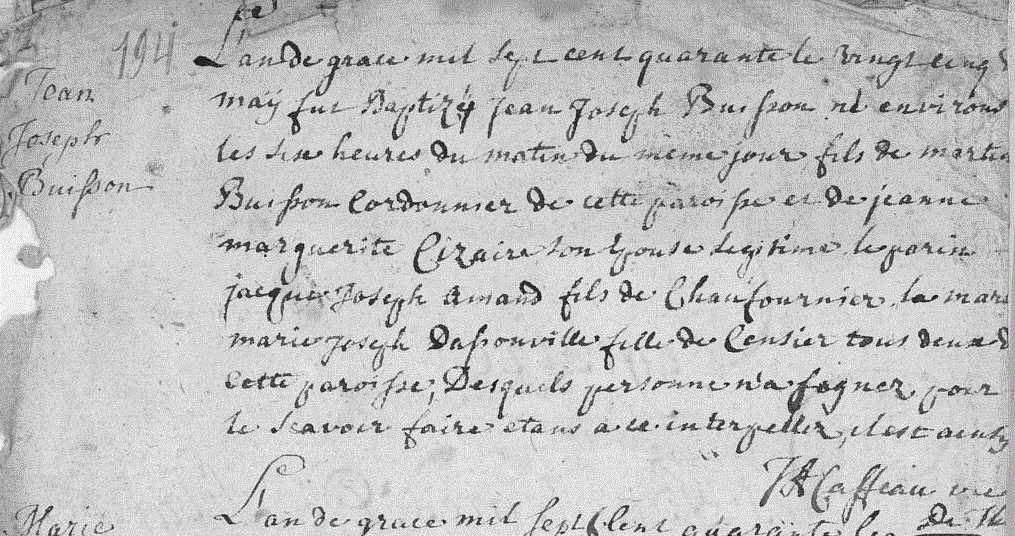 194
Jean
Joseph
Buisson
L'an de grace mil sept cent quarante le vingt cinq
maÿ fut Baptizé jean Joseph Buisson né environs
les six heures du matin du même jour fils de martin
Buisson Cordonnier de cette paroisse et de jeanne
marguerite Cizaire son Epouse legitime le parin
jacque Joseph Amand fils de Chaufournier, la mare
marie joseph Dassonville fille de Censier tous deux d
cette paroisse, Desquels personne n'a signer pour
le scavoir faire etans a ce interpeller, c'est ainsy
Caffeau
Marie
L'an de grace mil sept Cent quarante le